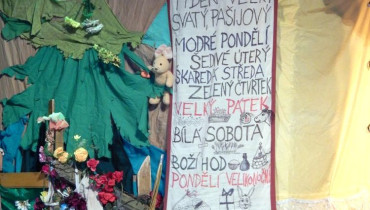 TÝDEN VELKÝ
SVATÝ, PAŠIJOVÝ
MODRÉ PONDĚLÍ
ŠEDIVÉ ÚTERÝ
ŠKAREDÁ STŘEDA
ZELENÝ ČTVRTEK
VELKÝ PÁTEK
BÍLÁ SOBOTA
BOŽÍ HOD
PONDĚLÍ VELIKONOČNÍ